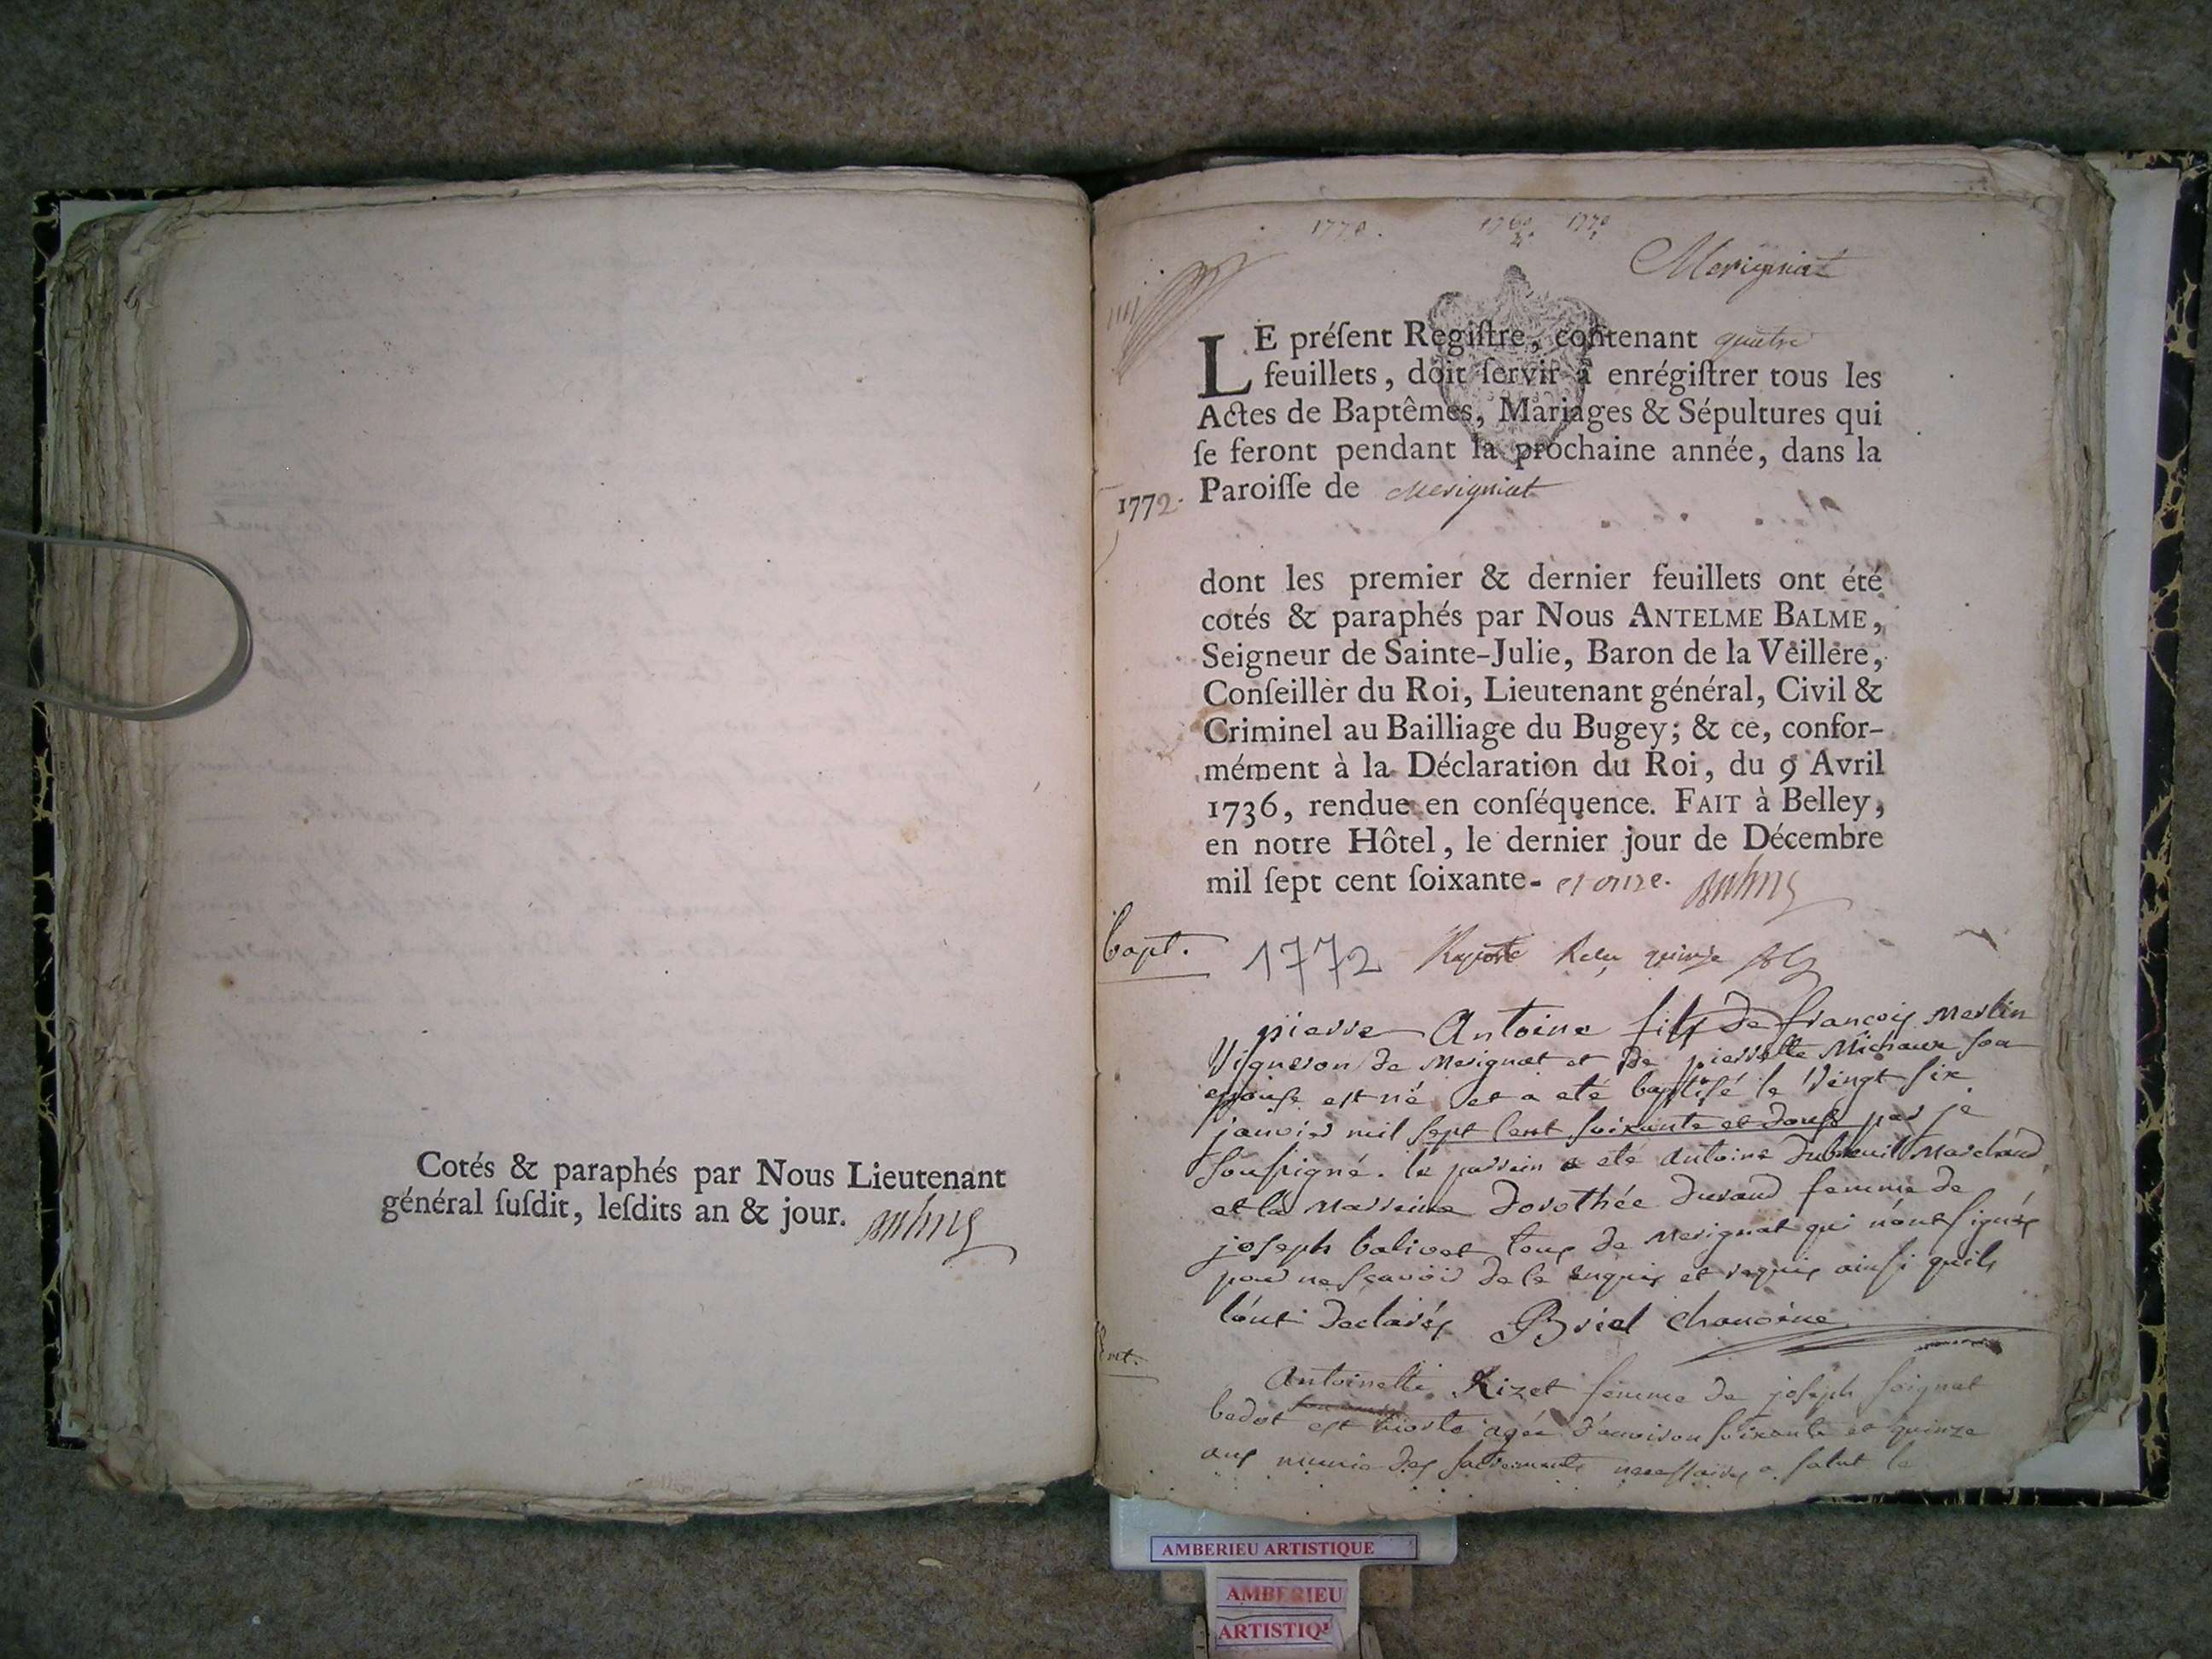 Cotés & paraphés par Nous Lieutenant
général ſuſdit, leſdits an & jour.
1770.
1770
Merigniat
LE préſent Regiſtre, contenant quatre
feuillets, doit ſervir à enrégiſtrer tous les
Actes de Baptêmes, Mariages & Sépultures qui
ſe feront pendant la prochaine année, dans la
1772. Paroiſſe de Merigniat
dont les premier & dernier feuillets ont été
cotés & paraphés par Nous ANTELME BALME,
Seigneur de Sainte-Julie, Baron de la Veillere,
Conſeiller du Roi, Lieutenant général, Civil &
Criminel au Bailliage du Bugey; & ce, confor-
mément à la Déclaration du Roi, du 9 Avril
1736, rendue en conſéquence. FAIT à Belley,
en notre Hôtel, le dernier jour de Décembre
mil ſept cent ſoixante- et onze.
bapt. 1772 quinze
pierre Antoine fils de françois Merlin
Vigneron de Merignat et de pierrette Michaux son
epouse est né et a eté baptisé le Vingt six
janvier mil sept cent soixante et douse par je
soussigné. le parrein a eté Antoine Dubreuil Marchand
et la Marreine Dorothée Durand femme de
joseph balivet tous de Merignat qui n'ont signés
pour ne sçavoir de ce enquis et requis ainsi quils
l'ont declarés Briel chanoine
Antoinette Rizet femme de joseph soignat
bedot est morte agée d'environ soixante et quinze
ans munie des sacrements necessaires a salut le
AMBERIEU ARTISTIQUE
AMBERIEU
ARTISTIQ